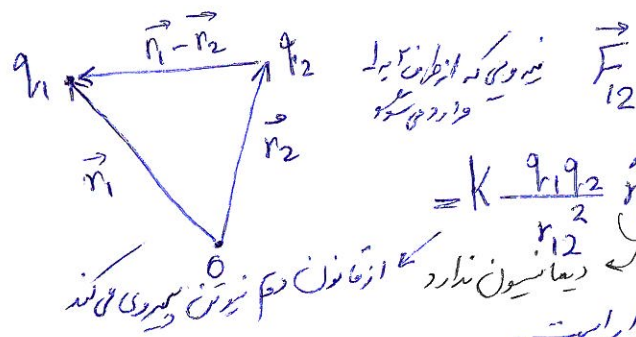 q₁ r⃗₁ - r⃗₂ q₂
نیرویی که از طرف ۲ به ۱ F⃗₁₂
وارد می شود
r⃗₁ r⃗₂
= K q₁q₂ / r₁₂² r̂
O
دیمانسیون ندارد
از قانون دوم نیوتن پیروی می کند